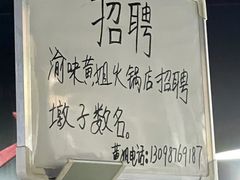 招聘
渝味黄姐火锅店招聘
墩子数名。
黄姐电话:13098769187